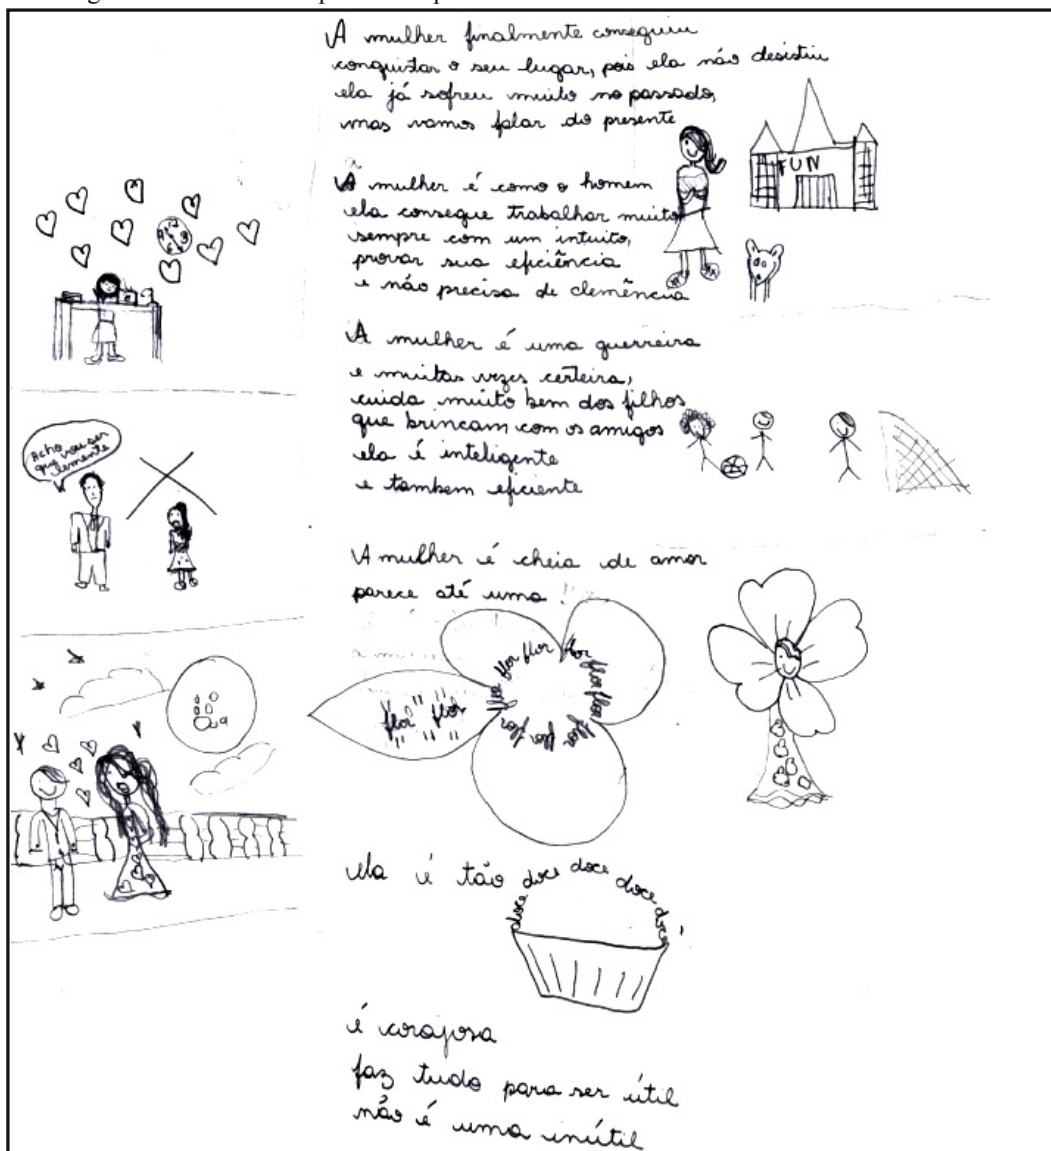 A mulher finalmente conseguiu
conquistar o seu lugar, pois ela não desistiu
ela já sofreu muito no passado,
mas vamos falar do presente
FUN
A mulher é como o homem
ela consegue trabalhar muito
sempre com um intuito,
provar sua eficiência
e não precisa de clemência
A mulher é uma guerreira
e muitas vezes certeira,
cuida muito bem dos filhos
que brincam com os amigos
ela é inteligente
e tambem eficiente
Acho
que vou ser
clemente
A mulher é cheia de amor
parece até uma
flor flor flor flor flor flor flor flor flor flor
"flor" "flor"
ela é tão doce doce doce doce doce
é corajosa
faz tudo para ser útil
não é uma inútil